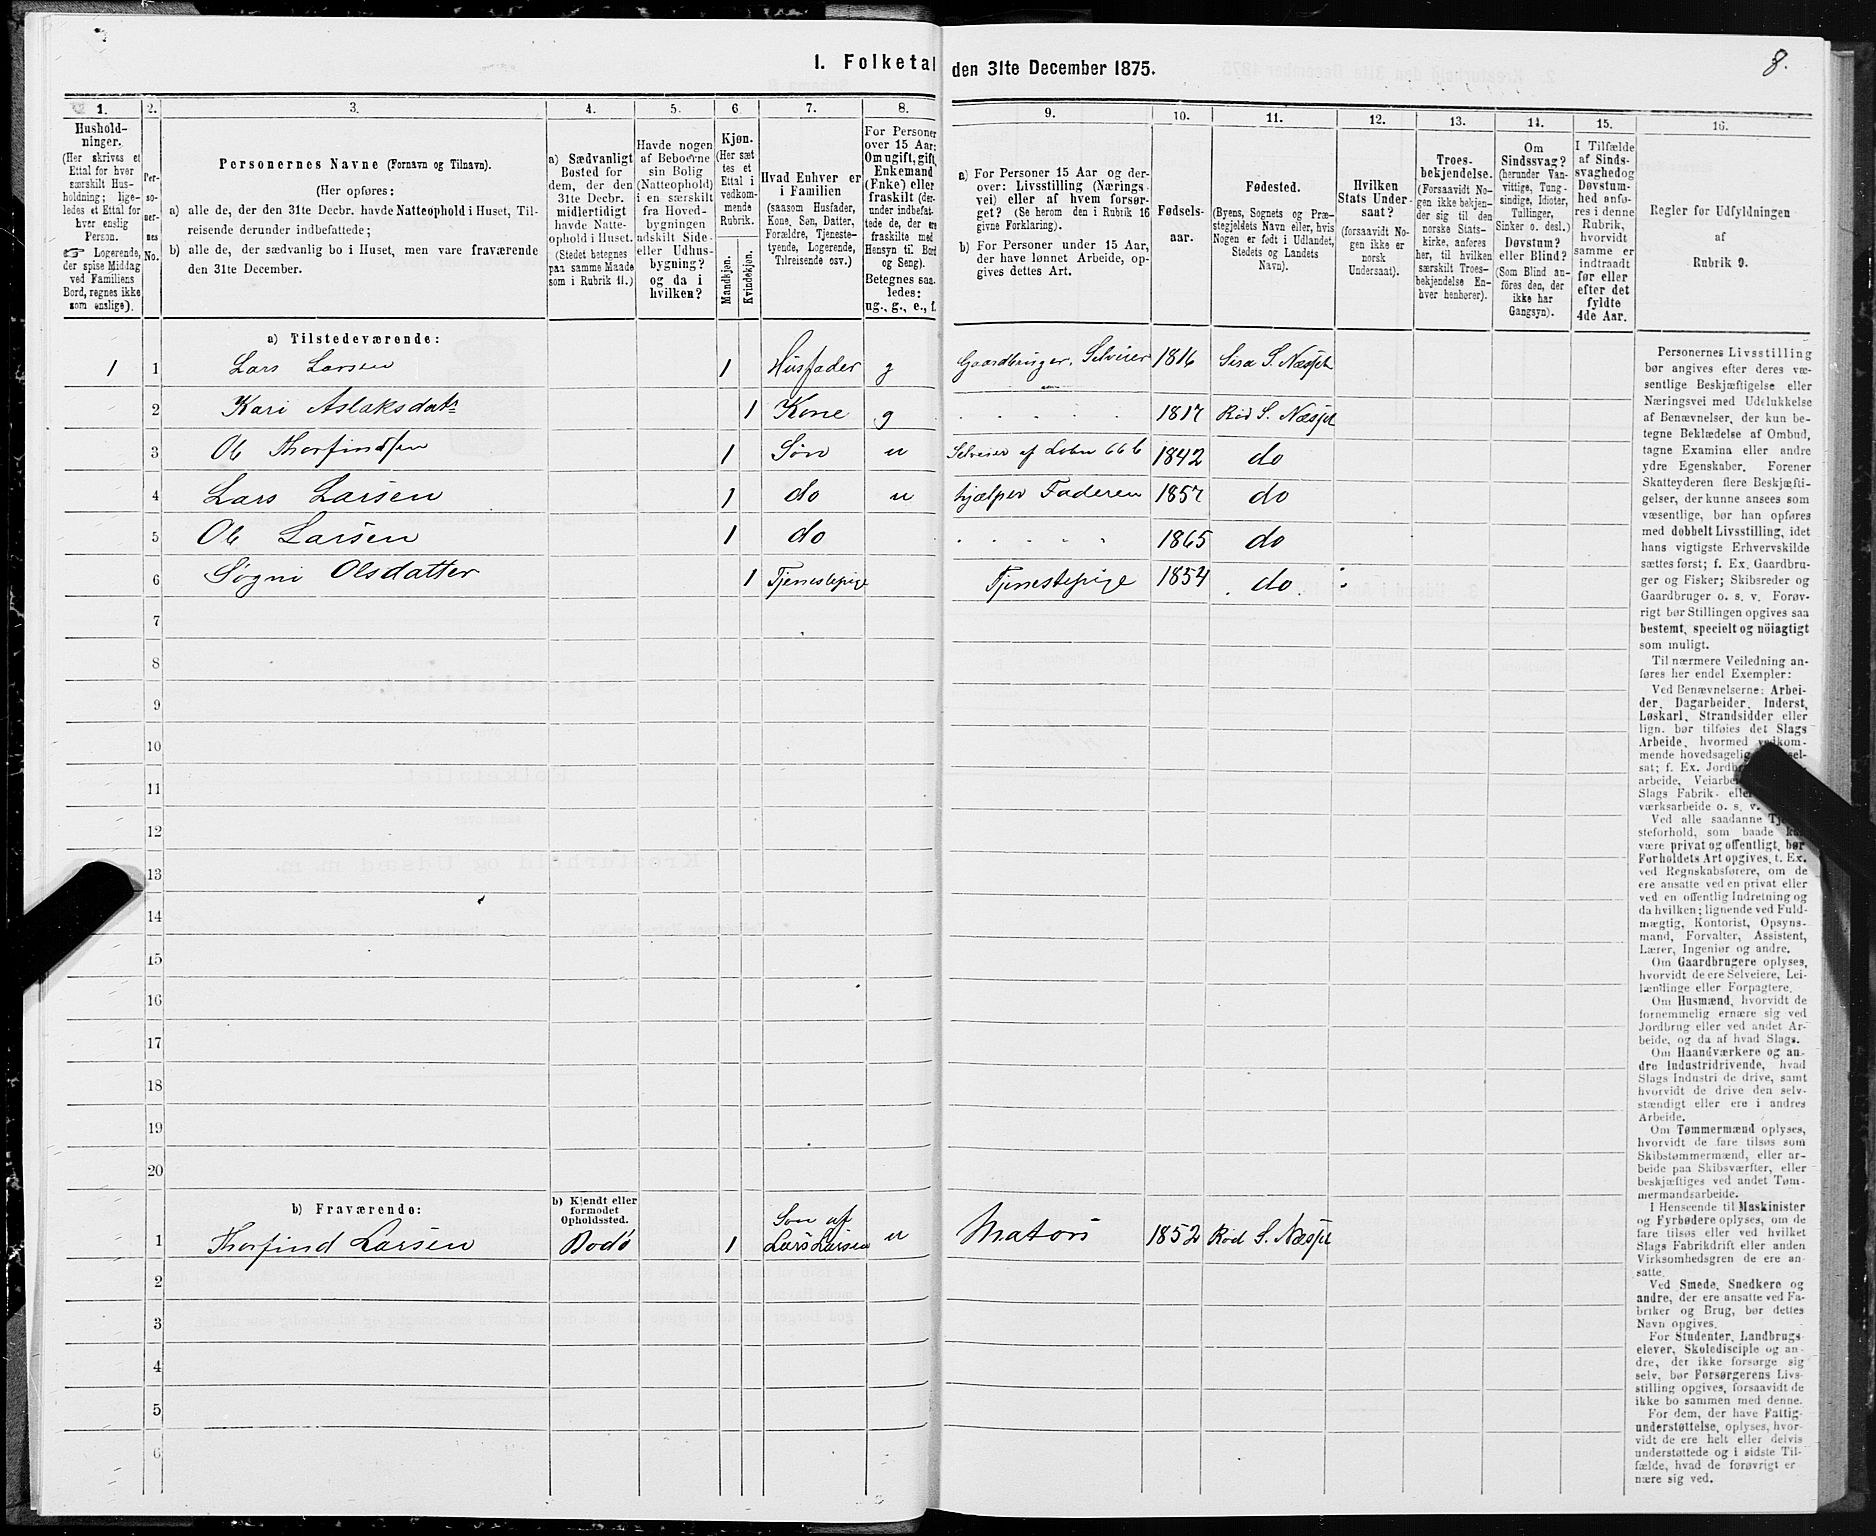 I. Folketal den 31te December 1875.
8.
1.
Hushold-
ninger.
(Her skrives et
Ettal for hver
særskilt Hus-
holdning; lige-
ledes et Ettal for
hver enslig
Person.
☞ Logerende,
der spise Middag
ved Familiens
Bord, regnes ikke
som enslige).
2.
Per-
so-
ner-
nes
No.
3.
Personernes Navne (Fornavn og Tilnavn).
(Her opføres:
a) alle de, der den 31te Decbr. havde Natteophold i Huset, Til-
reisende derunder indbefattede;
b) alle de, der sædvanlig bo i Huset, men vare fraværende
den 31te December.
4.
a) Sædvanligt
Bosted for
dem, der den
31te Decbr.
midlertidigt
havde Natte-
ophold i Huset.
(Stedet betegnes
paa samme Maade
som i Rubrik 11.)
5.
Havde nogen
af Beboerne
sin Bolig
(Natteophold)
i en særskilt
fra Hoved-
bygningen
adskilt Side-
eller Udhus-
bygning?
og da i
hvilken?
6
Kjøn.
(Her sæt
tes et
Ettal i
vedkom-
mende
Rubrik.
Mandkjøn.
Kvindekjøn.
7.
Hvad Enhver er
i Familien
(saasom Husfader,
Kone, Søn, Datter.
Forældre, Tjeneste-
tyende, Logerende,
Tilreisende osv.)
8.
For Personer
over 15 Aar:
Om ugift, gift,
Enkemand
(Enke) eller
fraskilt (der-
under indbefat-
tede de, der ere
fraskilte med
Hensyn til Bord
og Seng).
Betegnes saa-
ledes:
ug., g., e., f.
9.
a) For Personer 15 Aar og der-
over: Livsstilling (Nærings-
vei) eller af hvem forsør-
get? (Se herom den i Rubrik 16
givne Forklaring).
b) For Personer under 15 Aar,
der have lønnet Arbeide, op-
gives dettes Art.
10.
Fødsels-
aar.
11.
Fødested.
(Byens, Sognets og Præ-
stegjeldets Navn eller, hvis
Nogen er født i Udlandet,
Stedets og Landets
Navn).
12.
Hvilken
Stats Under-
saat?
(forsaavidt No-
gen ikke er
norsk
Undersaat).
13.
Troes-
bekjendelse.
(Forsaavidt No-
gen ikke bekjen-
der sig til den
norske Stats-
kirke, anføres
her, til hvilken
særskilt Troes-
bekjendelse En-
hver henhører).
14.
Om
Sindssvag?
(herunder Van-
vittige, Tung-
sindige, Idioter,
Tullinger,
Sinker o. desl.)
Døvstum?
eller Blind?
(Som Blind an-
føres den, der
ikke har
Gangsyn).
15.
I Tilfælde
af Sinds-
svaghed og
Døvstum-
hed anfø-
res i denne
Rubrik,
hvorvidt
samme er
indtraadt
før eller
efter det
fyldte
4de Aar.
16.
Regler for Udfyldningen
af
Rubrik 9.
a) Tilstedeværende:
1 1 Lars Larsen 1 Husfader g Gaardbruger. Selveier 1816 S. Næsjet
2 Kari Aslaksdatr 1 Kone g 1817 Rød S. Næsjet
3 Ole Thorfindsen 1 Søn u Selveier af Løbn 66 b 1842 do
4 Lars Larsen 1 do u hjælper Faderen 1857 do
5 Ole Larsen 1 do 1865 do
6 Søgni Olsdatter 1 Tjenestepige Tjenestepige 1854 do
7
8
9
10
11
12
13
14
15
16
17
18
19
20
b) Fraværende:
b) Kjendt eller
formodet
Opholdssted.
1 Thorfind Larsen Bodø 1 Søn af Lars Larsen u Matros 1852 Rød S. Næsjet
2
3
4
5
6
Personernes Livsstilling
bør angives efter deres væ-
sentlige Beskjæftigelse eller
Næringsvei med Udelukkelse
af Benævnelser, der kun be-
tegne Beklædelse af Ombud,
tagne Examina eller andre
ydre Egenskaber. Forener
Skatteyderen flere Beskjæfti-
gelser, der kunne ansees som
væsentlige, bør han opføres
med dobbelt Livsstilling, idet
hans vigtigste Erhvervskilde
sættes først; f. Ex. Gaardbru-
ger og Fisker; Skibsreder og
Gaardbruger o. s. v. Forøv-
rigt bør Stillingen opgives saa
bestemt, specielt og nöiagtigt
som muligt.
Til nærmere Veiledning an-
føres her endel Exempler:
Ved Benævnelserne: Arbei-
der, Dagarbeider, Inderst,
Løskarl, Strandsidder eller
lign. bør tilføies det Slags
Arbeide, hvormed
mende hovedsagelig
sat; f. Ex.
arbeide,
Slags Fabrik-
værksarbeide o. s. v.
Ved alle saadanne
steforhold, som baade
være privat og offentligt, bør
Forholdets Art opgives, t. Ex.
ved Regnskabsførere, om de
ere ansatte ved en privat eller
ved en offentlig Indretning og
da hvilken; lignende ved Fuld-
mægtig, Kontorist, Opsyns-
mand, Forvalter, Assistent,
Lærer, Ingeniør og andre.
Om Gaardbrugere oplyses,
hvorvidt de ere Selveiere, Lei-
lændinge eller Forpagtere.
Om Husmænd, hvorvidt de
fornemmelig ernære sig ved
Jordbrug eller ved andet Ar-
beide, og da af hvad Slags.
Om Haandværkere og an-
dre Industridrivende, hvad
Slags Industri de drive, samt
hvorvidt de drive den selv-
stændigt eller ere i andres
Arbeide.
Om Tømmermænd oplyses,
hvorvidt de fare tilsøs som
Skibstømmermænd, eller ar-
beide paa Skibsværfter, eller
beskjæftiges ved andet Tøm-
mermandsarbeide.
I Henseende til Maskinister
og Fyrbødere oplyses, om de
fare tilsøs eller ved hvilket
Slags Fabrikdrift eller anden
Virksomhedsgren de ere an-
satte.
Ved Smede, Snedkere og
andre, der ere ansatte ved Fa-
briker og Brug, bør dettes
Navn opgives.
For Studenter, Landbrugs-
elever, Skoledisciple og an-
dre, der ikke forsørge sig
selv, bør Forsørgerens Livs-
stilling opgives, forsaavidt de
ikke bo sammen med denne.
For dem, der have Fattig-
understøttelse, oplyses, hvor-
vidt de ere helt eller delvis
understøttede og i sidste Til-
fælde, hvad de forøvrigt er
nære sig ved.